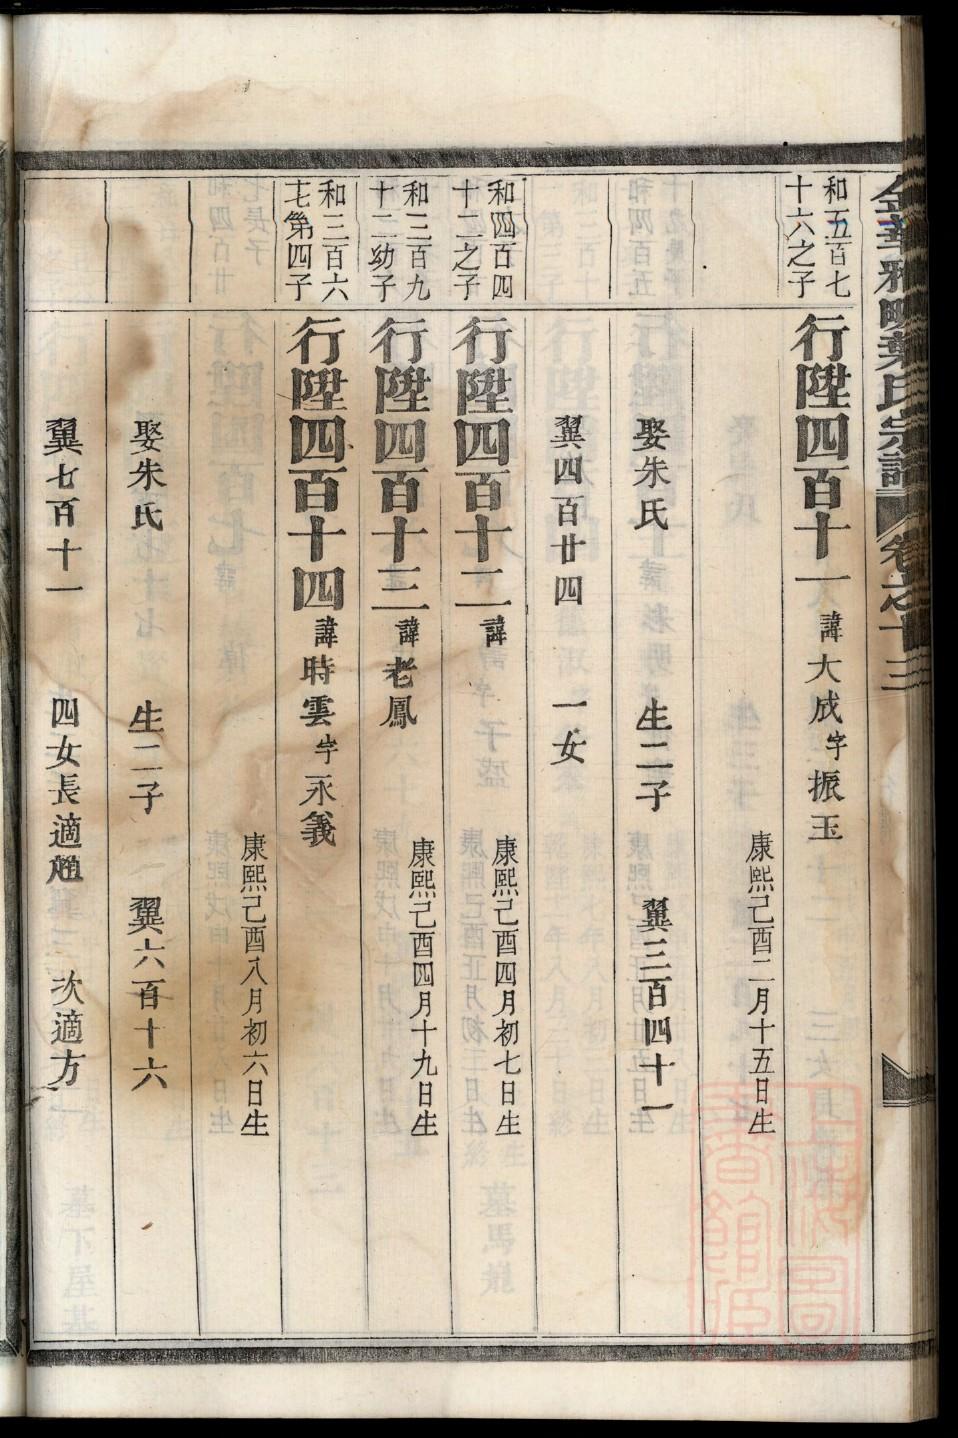 金華雅畈葉氏宗譜 卷之十三
和五百七
十六之子
行陞四百十一 諱大成字振玉
康熙己酉二月十五日生
娶朱氏 生二子 翼三百四十一
翼四百廿四 一女
和四百四
十二之子
行陞四百十二 諱
康熙己酉四月初七日生
和三百九
十二幼子
行陞四百十三 諱老鳳
康熙己酉四月十九日生
和三百六
七第四子
行陞四百十四 諱時雲字永義
康熙己酉八月初六日生
娶朱氏 生二子 翼六百十六
翼七百十一 四女長適趙 次適方